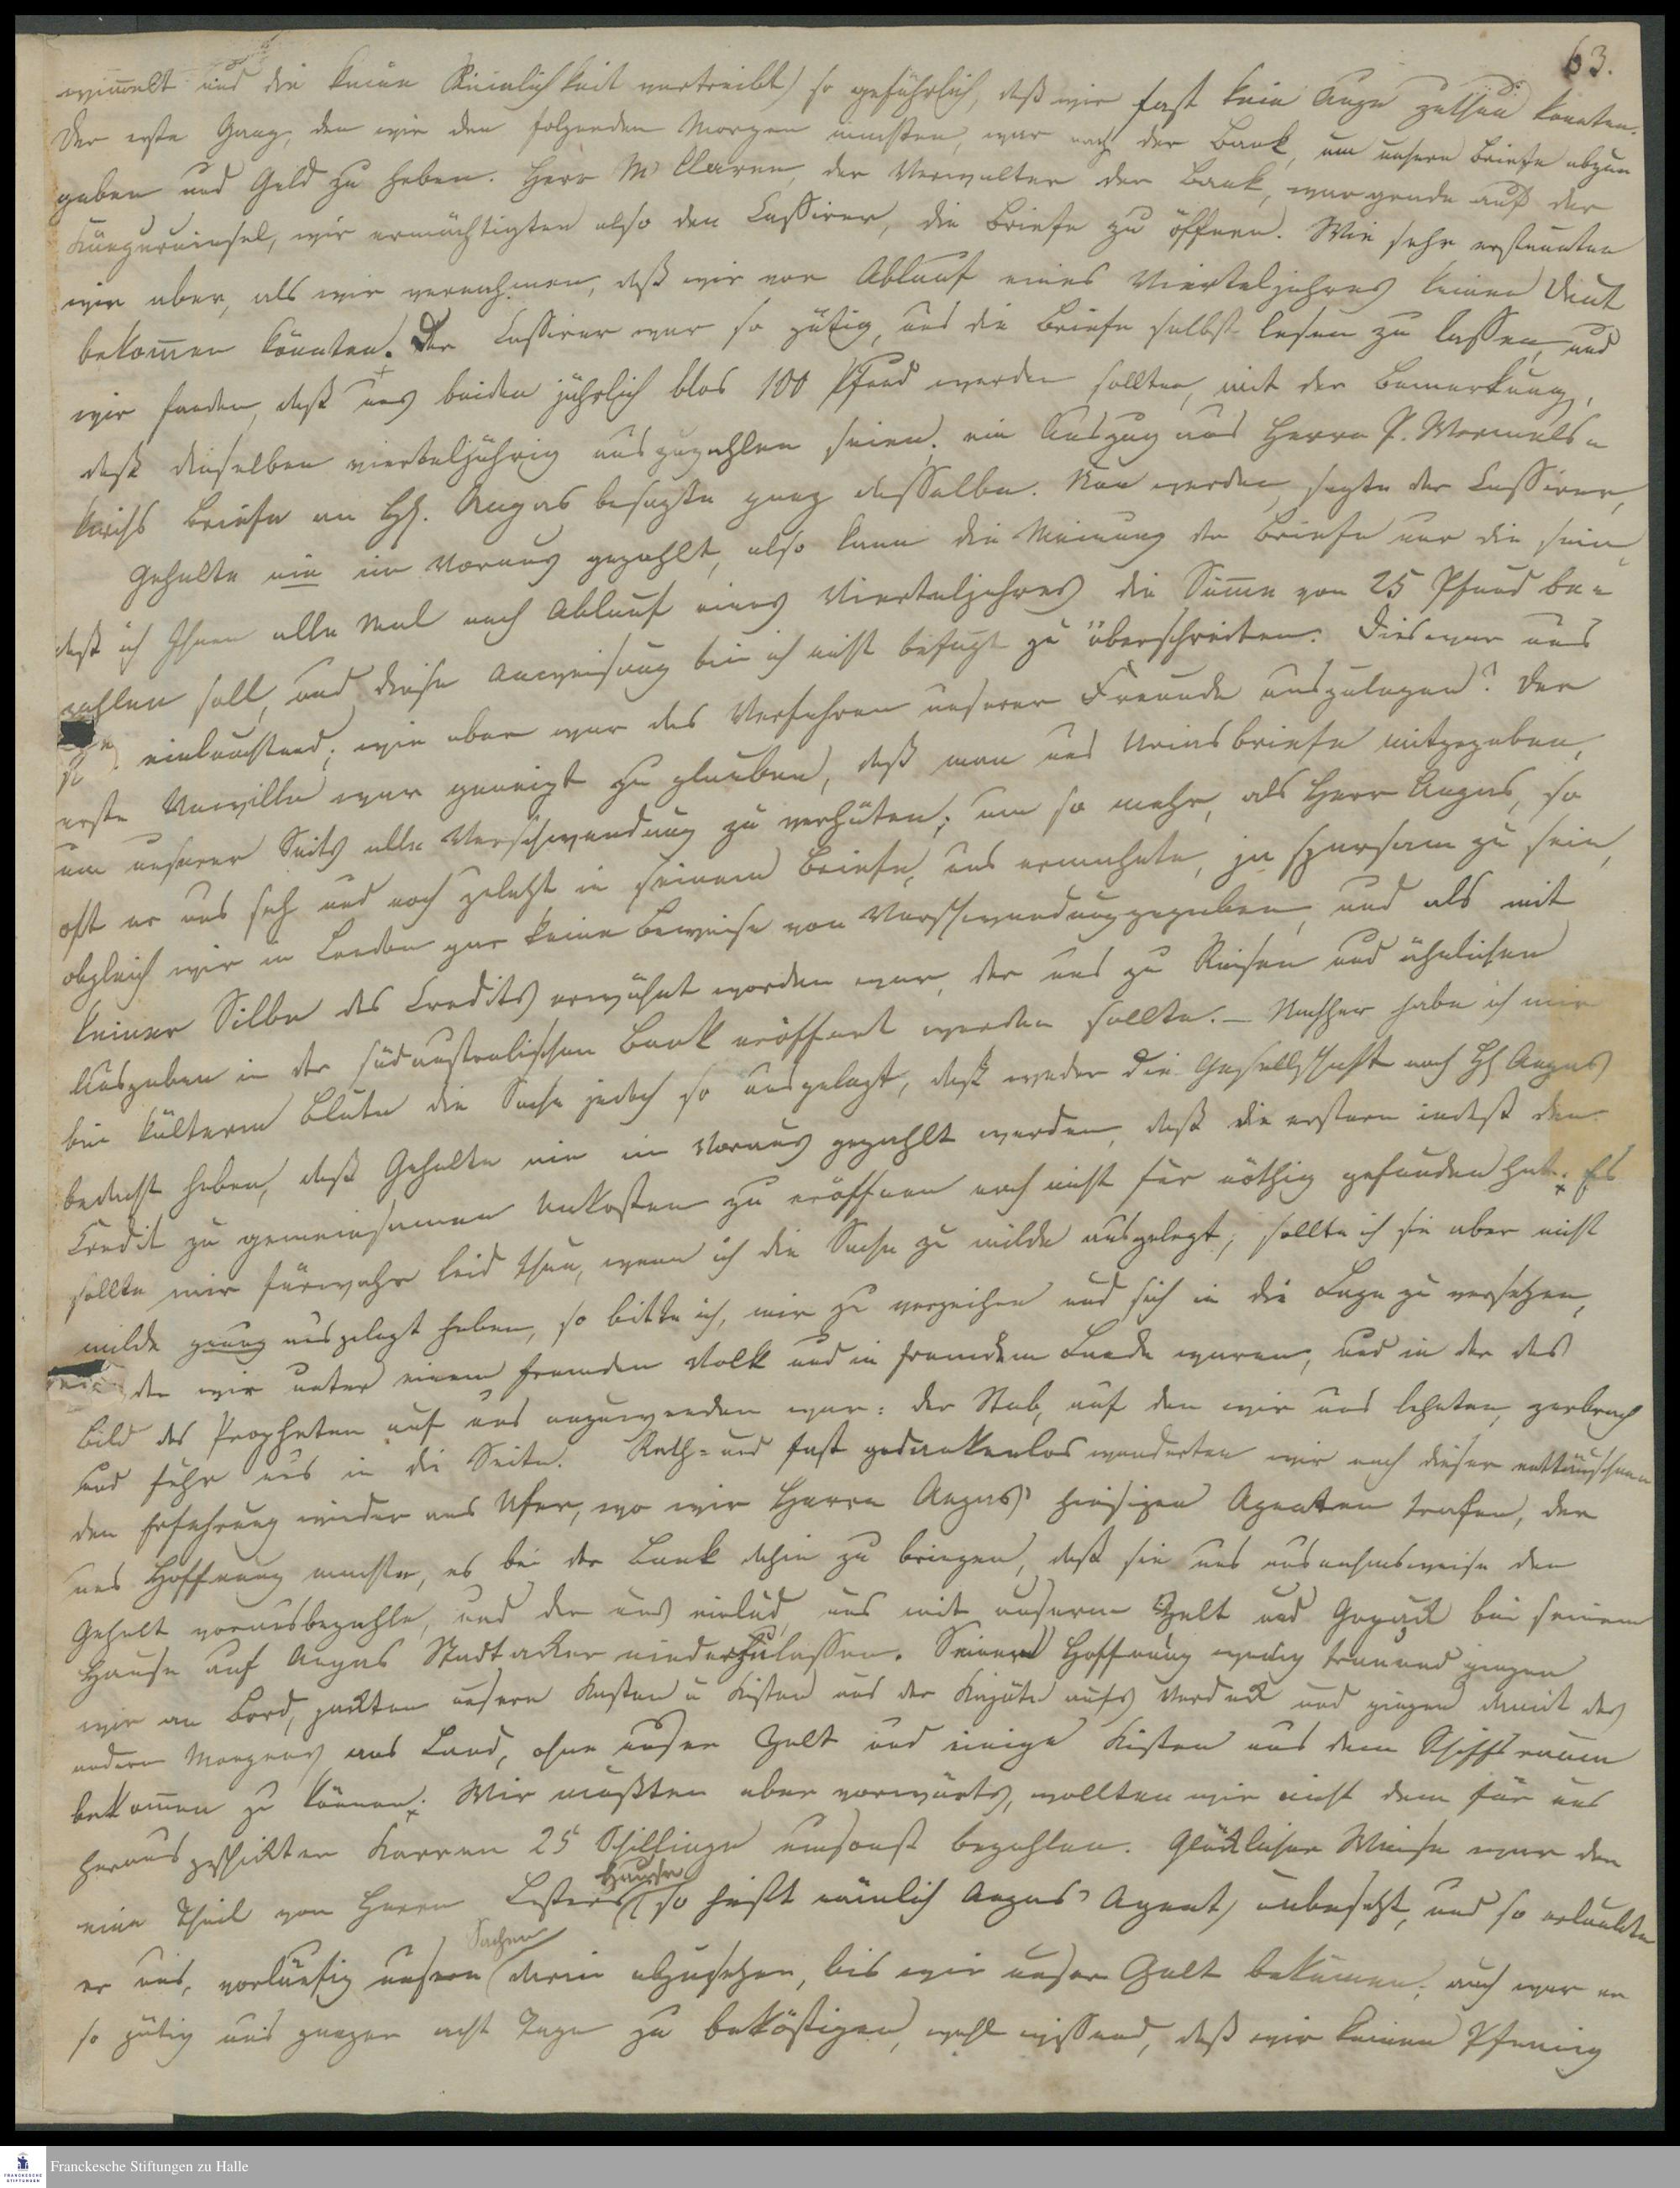 63.
wimelt und die keine Reinlichkeit vertreibt) so gefährlich, daß wir fast kein Auge zuthun konnten.
Der erste Gang, den wir den folgenden Morgen machten, war nach der Bank, um unsere Briefe abzu
geben und Geld zu heben. Herr Mc Claren, der Verwalter der Bank, war gerade auf der
Känguruinsel, wir ermächtigten also den Cassirer, die Briefe zu öffnen. Wie sehr erstaunten
wir aber, als wir vernahmen, daß wir vor Ablauf eines Vierteljahres keinen Deut
bekommen könnten. Der Cassirer war so gütig, uns die Briefe selbst lesen zu lassen, und
wir fanden, daß uns beiden jährlich blos 100 Pfund werden sollten, mit der Bemerkung,
daß dieselben vierteljährig auszuzahlen seien; ein Auszug aus Herrn P. Wermels-
kirchs Briefe an H. Angas besagte ganz dasselbe. Nun werden, sagte der Cassirer,
Gehalte nie im Voraus gezahlt, also kann die Meinung der Briefe nur die sein
daß ich Ihnen alle Mal nach Ablauf eines Vierteljahres die Summe von 25 Pfund be-
zahlen soll, und diese Anweisung bin ich nicht befugt zu überschreiten. Dies war uns
einleuchtend; wie aber war das Verfahren unserer Freunde auszulegen? Der
erste Unwille war geneigt zu glauben, daß man uns Uriasbriefe mitgegeben,
um unserer Seits alle Verschwendung zu verhüten; um so mehr, als Herr Angas, so
oft er uns sah und noch zuletzt in seinem Briefe, uns ermahnte, ja sparsam zu sein,
obgleich wir in London gar keine Beweise von Verschwendung gegeben, und als mit
keiner Silbe des Credits erwähnt worden war, der uns zu Reisen und ähnlichen
Ausgaben in der südaustralischen Bank eröffnet werden sollte. – Nachher habe ich mir
bei kälterm Blute die Sache jedoch so ausgelegt, daß weder die Gesellschaft noch H. Angas
bedacht haben, daß Gehalte nie im Voraus gezahlt werden, daß die erstere indeß den
Credit zu gemeinsamen Unkosten zu eröffnen noch nicht für nöthig gefunden hat. Es
sollte mir fürwahr leid thun, wenn ich die Sache zu milde ausgelegt; sollte ich sie aber nicht
milde genug ausgelegt haben, so bitte ich, mir zu verzeihen und sich in die Lage zu versetzen,
in der wir unter einem fremden Volk und in fremdem Lande waren, und in der das
Bild des Propheten auf uns anzuwenden war: der Stab, auf den wir uns lehnten, zerbrach
und fuhr uns in die Seite. Rath- und fast gedankenlos wanderten wir nach dieser enttäuschen
den Erfahrung wieder ans Ufer, wo wir Herrn Angas' hiesigen Agenten trafen, der
uns Hoffnung machte, es bei der Bank dahin zu bringen, daß sie uns ausnahmsweise den
Gehalt vorausbezahle, und der uns einlud, uns mit unserm Zelt und Gepäck bei seinem
Hause auf Angas Stadtacker niederzulassen. Seiner Hoffnung wenig trauend gingen
wir an Bord, packten unsere Kasten u Kisten aus der Kajüte aufs Verdeck und gingen damit des
andern Morgens ans Land, ohne unser Zelt und einige Kisten aus dem Schiffsraum
bekommen zu können. Wir mußten aber vorwärts, wollten wir nicht dem für uns
herausgeschickten Karren 25 Schillinge umsonst bezahlen. Glücklicher Weise war der
eine Theil von Herrn Listers Hause (so heißt nämlich Angas' Agent) unbesetzt, und so erlaubte
er uns, vorläufig unsere Sachen darin abzusetzen, bis wir unser Zelt bekämen; auch war er
so gütig uns ganzer acht Tage zu beköstigen, wohl wissend, daß wir keinen Pfennig
Franckesche Stiftungen zu Halle